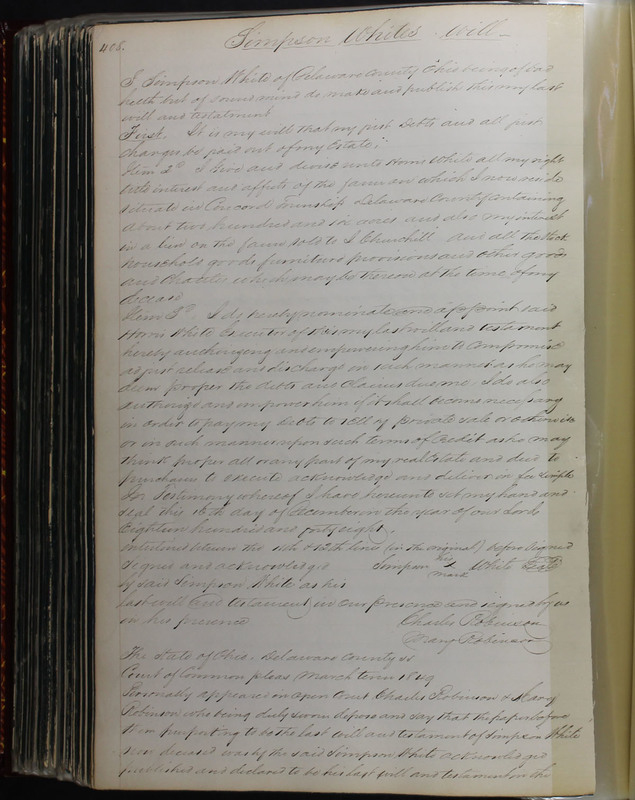 408.
Simpson Whites Will
I Simpson White of Delaware County Ohio being of bad
health but of sound mind do make and publish this my last
will and testatment
First. It is my will that my just Debts and all just
charges be paid out of my Estate.
Item 2d I Give and divise unto Horris White all my right
title interest and affects of the farm on which I now reside
situate in Concord Township Delaware County Containing
about two hundred and six acres and also my interest
in a lien on the farm sold to I Churchill And all the stock
household goods furniture provisions and other goods
and Chattles which may be thereon at the time of my
decease
Item 3d. I do hereby nominate and appoint said
Horris White Executor of this my last will and testament
hereby authorizing and empowering him to compromise
adjust release and discharge in such manner as he may
deem proper the debts and Claims due me. I do also
authorize and impower him if it shall become necessary
in order to pay my debts to sell by private sale or otherwise
or in such manner upon such terms of Credit as he may
think proper all or any part of my real estate and deed to
purchasers to execute acknowledge and deliver in fee simple
In Testimony whereof I have hereunto set my hand and
seal this 16th day of December in the year of our Lord
Eighteen hundred and forty eight.
interlined between the 11th & 12th lines (in the original) before signed
Signed and acknowledged Simpson his X mark White Seal
by said Simpson White as his
last will and testament in our presence and signed by us
in his presence Charles Robinson
Mary Robinson
The State of Ohio. Delaware County ss
Court of Common pleas March term 1849
Personally appeared in open Court Charles Robinson & Mary
Robinson who being duly sworn depose and say that the paper before
them purporting to be the last will and testament of Simpson White
now deceased was by the said Simpson White acknowledged
published and declared to be his last will and testament in their